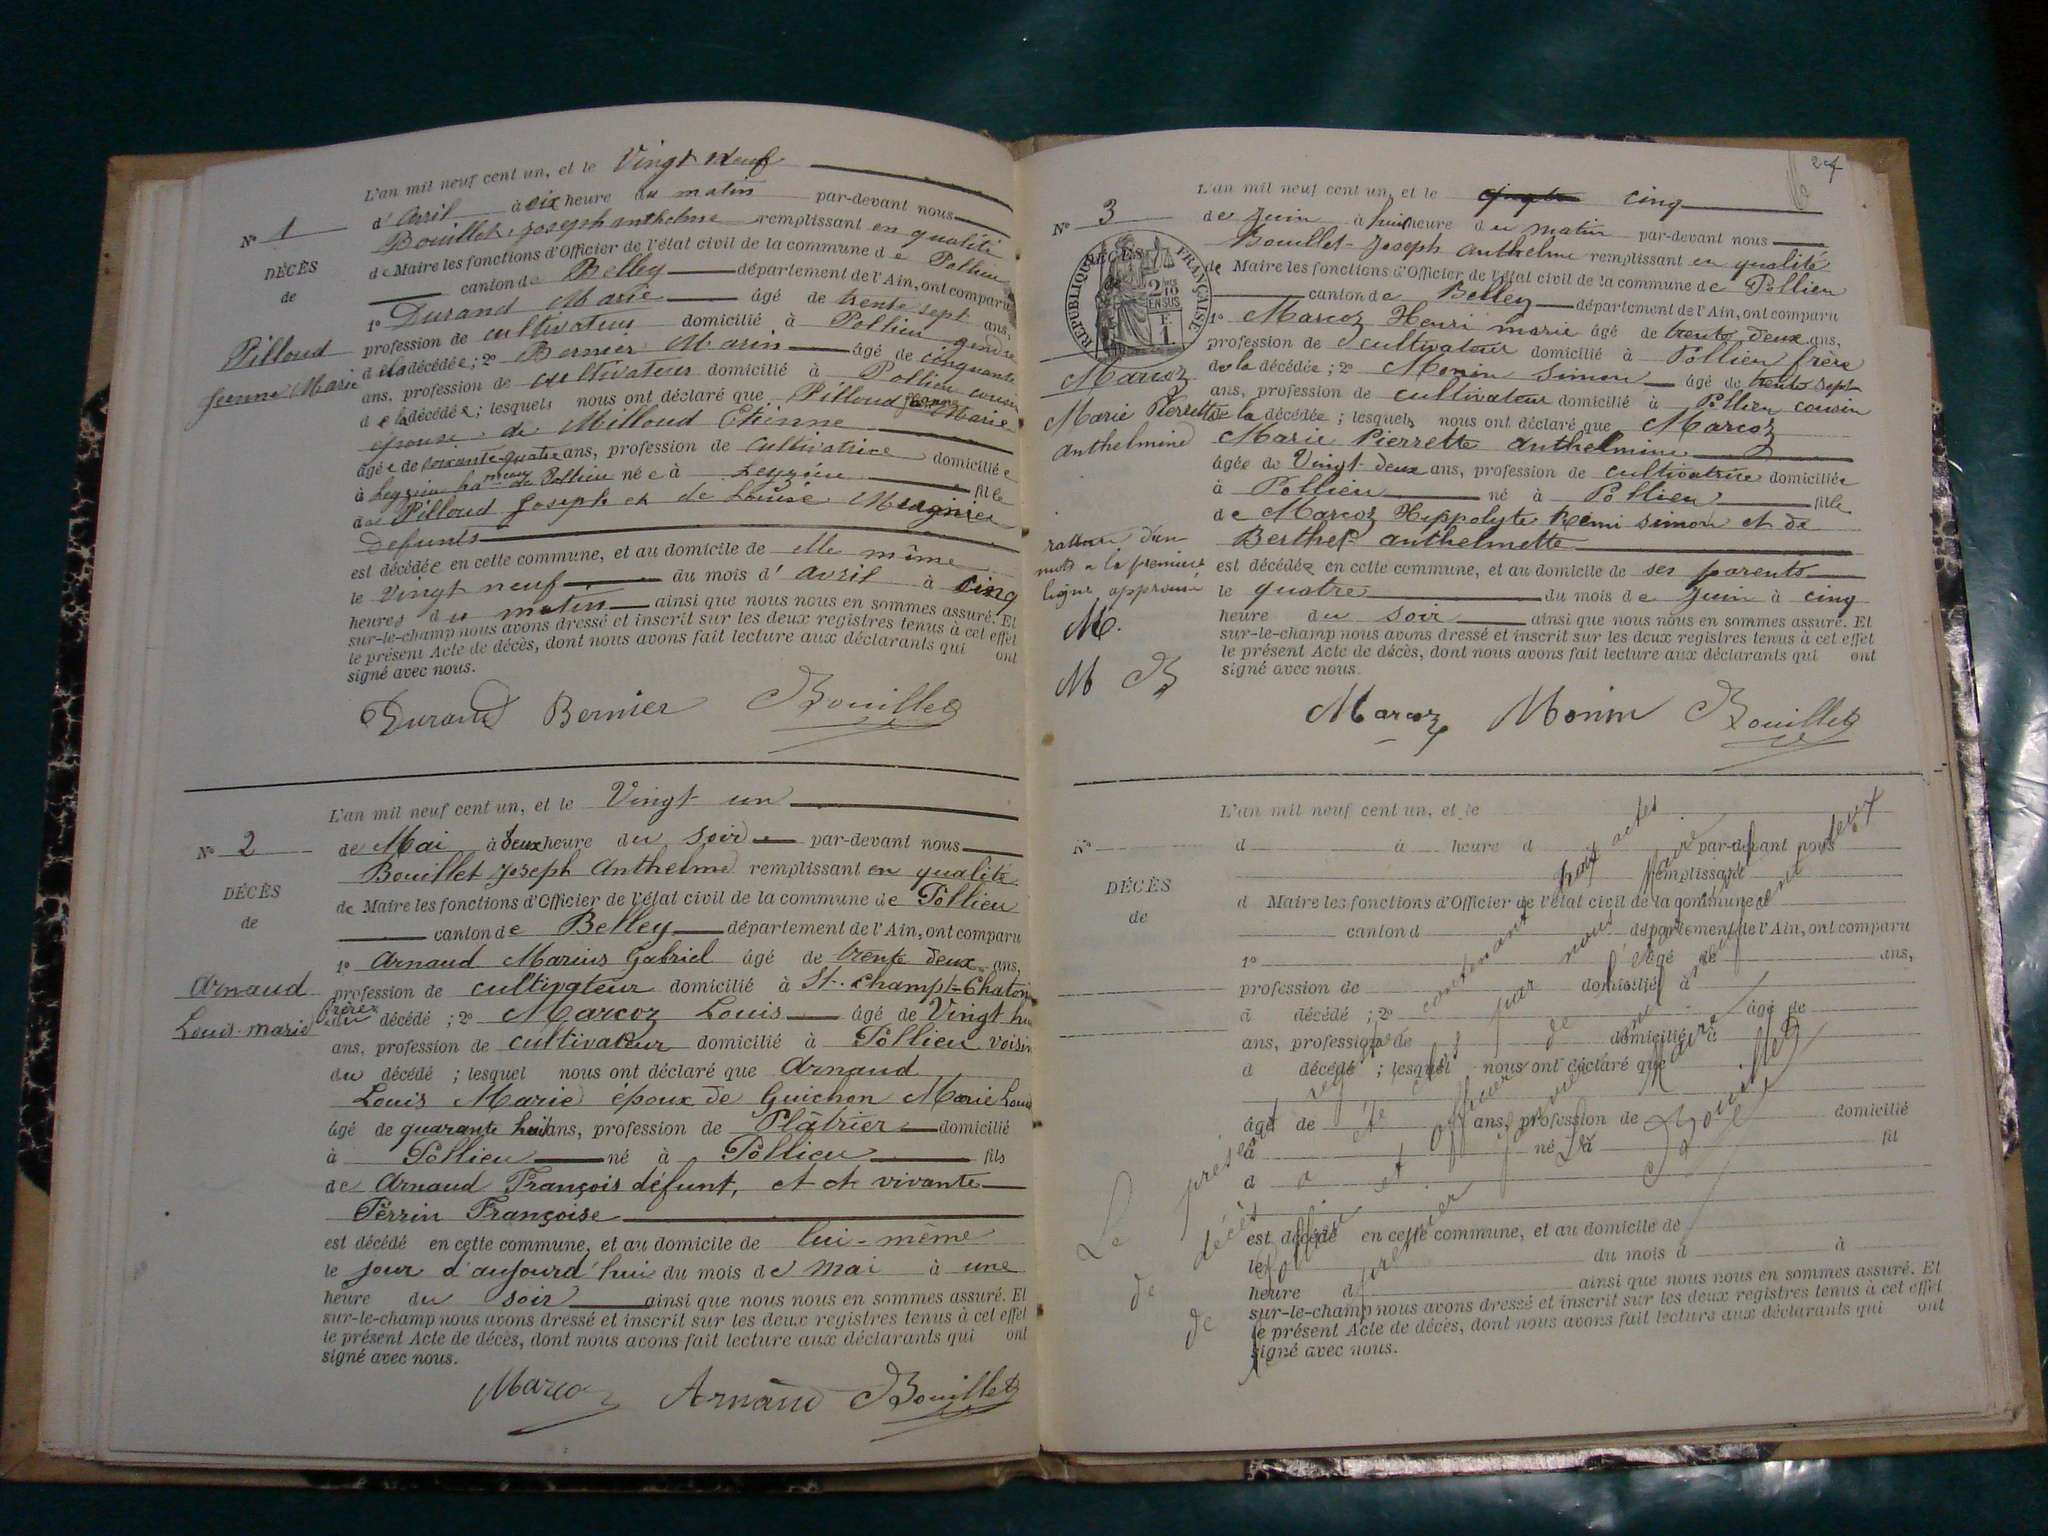 L'an mil neuf cent un, et le Vingt neuf
d'Avril à dix heure du matin par-devant nous
Bouillet Joseph anthelme remplissant en qualité
de Maire les fonctions d'Officier de l'état civil de la commune de Pollieu
canton de Belley département de l'Ain, ont comparu
1° Durand Marie âgé de trente sept ans,
profession de cultivateur domicilié à Pollieu gendre
de la décédée; 2° Bernier Marin âgé de cinquante
ans, profession de cultivateur domicilié à Pollieu cousin
de la décédée; lesquels nous ont déclaré que Pilloud Jeanne Marie
épouse de Milloud Etienne
âgée de soixante-quatre ans, profession de cultivatrice domiciliée
à Leyzieu ha.meau de Pollieu née à Leyzieu fille
de Pilloud Joseph et de Louise Mugnier
défunts
est décédée en cette commune, et au domicile de elle même
le Vingt neuf du mois d'avril à cinq
heures du matin ainsi que nous nous en sommes assuré. Et
sur-le-champ nous avons dressé et inscrit sur les deux registres tenus à cet effet
le présent Acte de décès, dont nous avons fait lecture aux déclarants qui ont
signé avec nous.
N° 1
DÉCÈS
de
Pilloud
Jeanne Marie
Durand Bernier Bouillet
L'an mil neuf cent un, et le Vingt un
de Mai à deux heure du soir par-devant nous
Bouillet Joseph Anthelme remplissant en qualité
de Maire les fonctions d'Officier de l'état civil de la commune de Pollieu
canton de Belley département de l'Ain, ont comparu
1° Arnaud Marius Gabriel âgé de trente deux ans,
profession de cultivateur domicilié à St. Champt-Chaton
frère du décédé; 2° Marcoz Louis âgé de Vingt hu
ans, profession de cultivateur domicilié à Pollieu voisin
du décédé; lesquel nous ont déclaré que Arnaud
Louis Marie époux de Guichon Marie Loui
âgé de quarante huit ans, profession de Plâtrier domicilié
à Pollieu né à Pollieu fils
de Arnaud François défunt, et et vivante
Perrin Françoise
est décédé en cette commune, et au domicile de lui-même
le jour d'aujourd'hui du mois de mai à une
heure du soir ainsi que nous nous en sommes assuré. Et
sur-le-champ nous avons dressé et inscrit sur les deux registres tenus à cet effet
le présent Acte de décès, dont nous avons fait lecture aux déclarants qui ont
signé avec nous.
N° 2
DÉCÈS
de
Arnaud
Louis-marie
Marcoz Arnaud Bouillet
27
L'an mil neuf cent un, et le cinq
de Juin à huit heure du matin par-devant nous
Bouillet-Joseph Anthelme remplissant en qualité
de Maire les fonctions d'Officier de l'état civil de la commune de Pollieu
canton de Belley département de l'Ain, ont comparu
1° Marcoz Henri marie âgé de trente deux ans,
profession de cultivateur domicilié à Pollieu frère
de la décédée; 2° Monin Simon âgé de trente sept
ans, profession de cultivateur domicilié à Pollieu cousin
de la décédée; lesquels nous ont déclaré que Marcoz
Marie Pierrette anthelmine
âgée de Vingt-deux ans, profession de cultivatrice domiciliée
à Pollieu né à Pollieu fille
de Marcoz Hippolyte Rémi Simon et de
Berthet anthelmette
est décédée en cette commune, et au domicile de ses parents
le quatre du mois de Juin à cinq
heure du soir ainsi que nous nous en sommes assuré. Et
sur-le-champ nous avons dressé et inscrit sur les deux registres tenus à cet effet
le présent Acte de décès, dont nous avons fait lecture aux déclarants qui ont
signé avec nous.
N° 3
DÉCÈS
RÉPUBLIQUE FRANÇAISE
2/10 EN SUS
Marcoz
Marie Pierrette
Anthelmine
rature d'un
mot a la premiere
ligne approuvé
M.
M B
Marcoz Monin Bouillet
L'an mil neuf cent un, et le
d à heure d par-devant nous
remplissant
d Maire les fonctions d'Officier de l'état civil de la commune d
canton d département de l'Ain, ont comparu
1° âgé de ans,
profession de domicilié à
d décédé; 2° âgé de
ans, profession de domicilié à
d décédé; lesquel nous ont déclaré que
âgé de ans, profession de domicilié
à né à fil
d
est décédé en cette commune, et au domicile de
le du mois d à
heure d ainsi que nous nous en sommes assuré. Et
sur-le-champ nous avons dressé et inscrit sur les deux registres tenus à cet effet
le présent Acte de décès, dont nous avons fait lecture aux déclarants qui ont
signé avec nous.
N°
DÉCÈS
de
Le présent registre contenant trois actes
de décès a été clos par nous Maire
de Pollieu et officier de l'état civil
le premier janvier
Le Maire
Bouillet